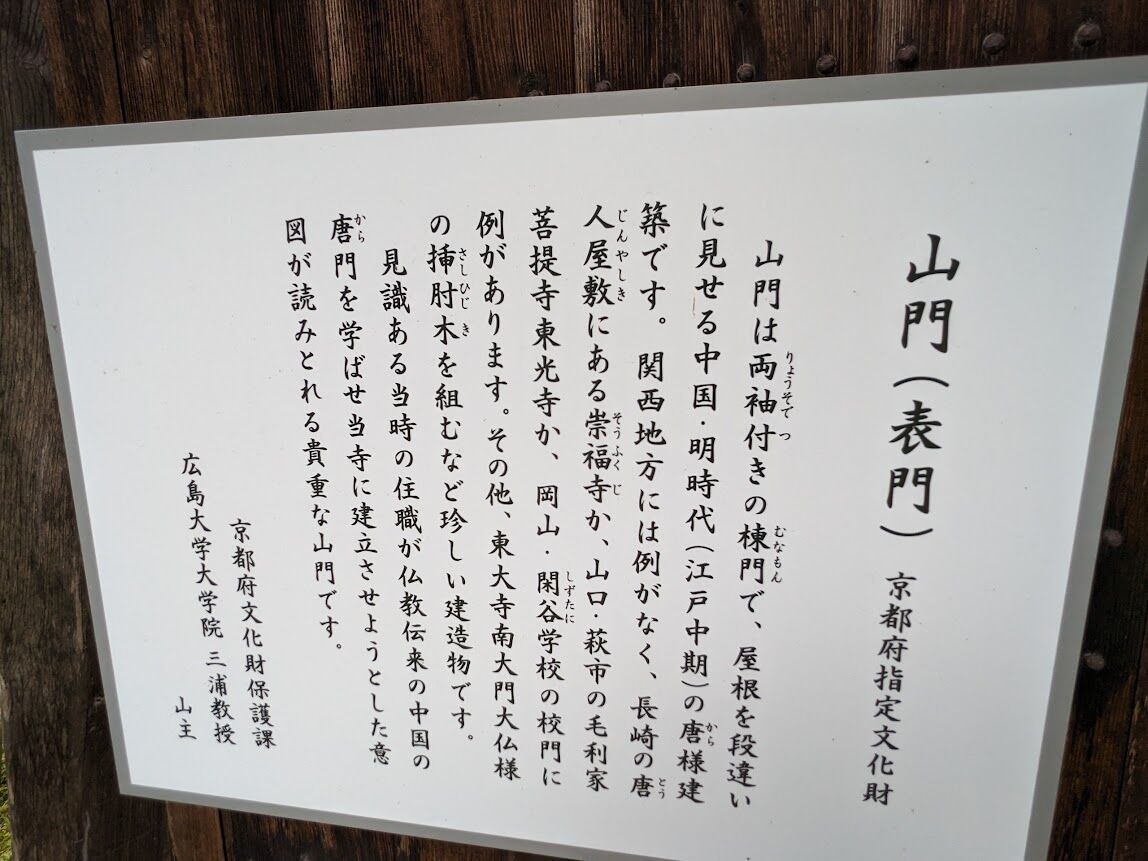 山門（表門）　京都府指定文化財
山門は両袖付きの棟門で、屋根を段違い
に見せる中国・明時代（江戸中期）の唐様建
築です。関西地方には例がなく、長崎の唐
人屋敷にある崇福寺か、山口・萩市の毛利家
菩提寺東光寺か、岡山・閑谷学校の校門に
例があります。その他、東大寺南大門大仏様
の挿肘木を組むなど珍しい建造物です。
見識ある当時の住職が仏教伝来の中国の
唐門を学ばせ当寺に建立させようとした意
図が読みとれる貴重な山門です。
京都府文化財保護課
広島大学大学院 三浦教授
山主